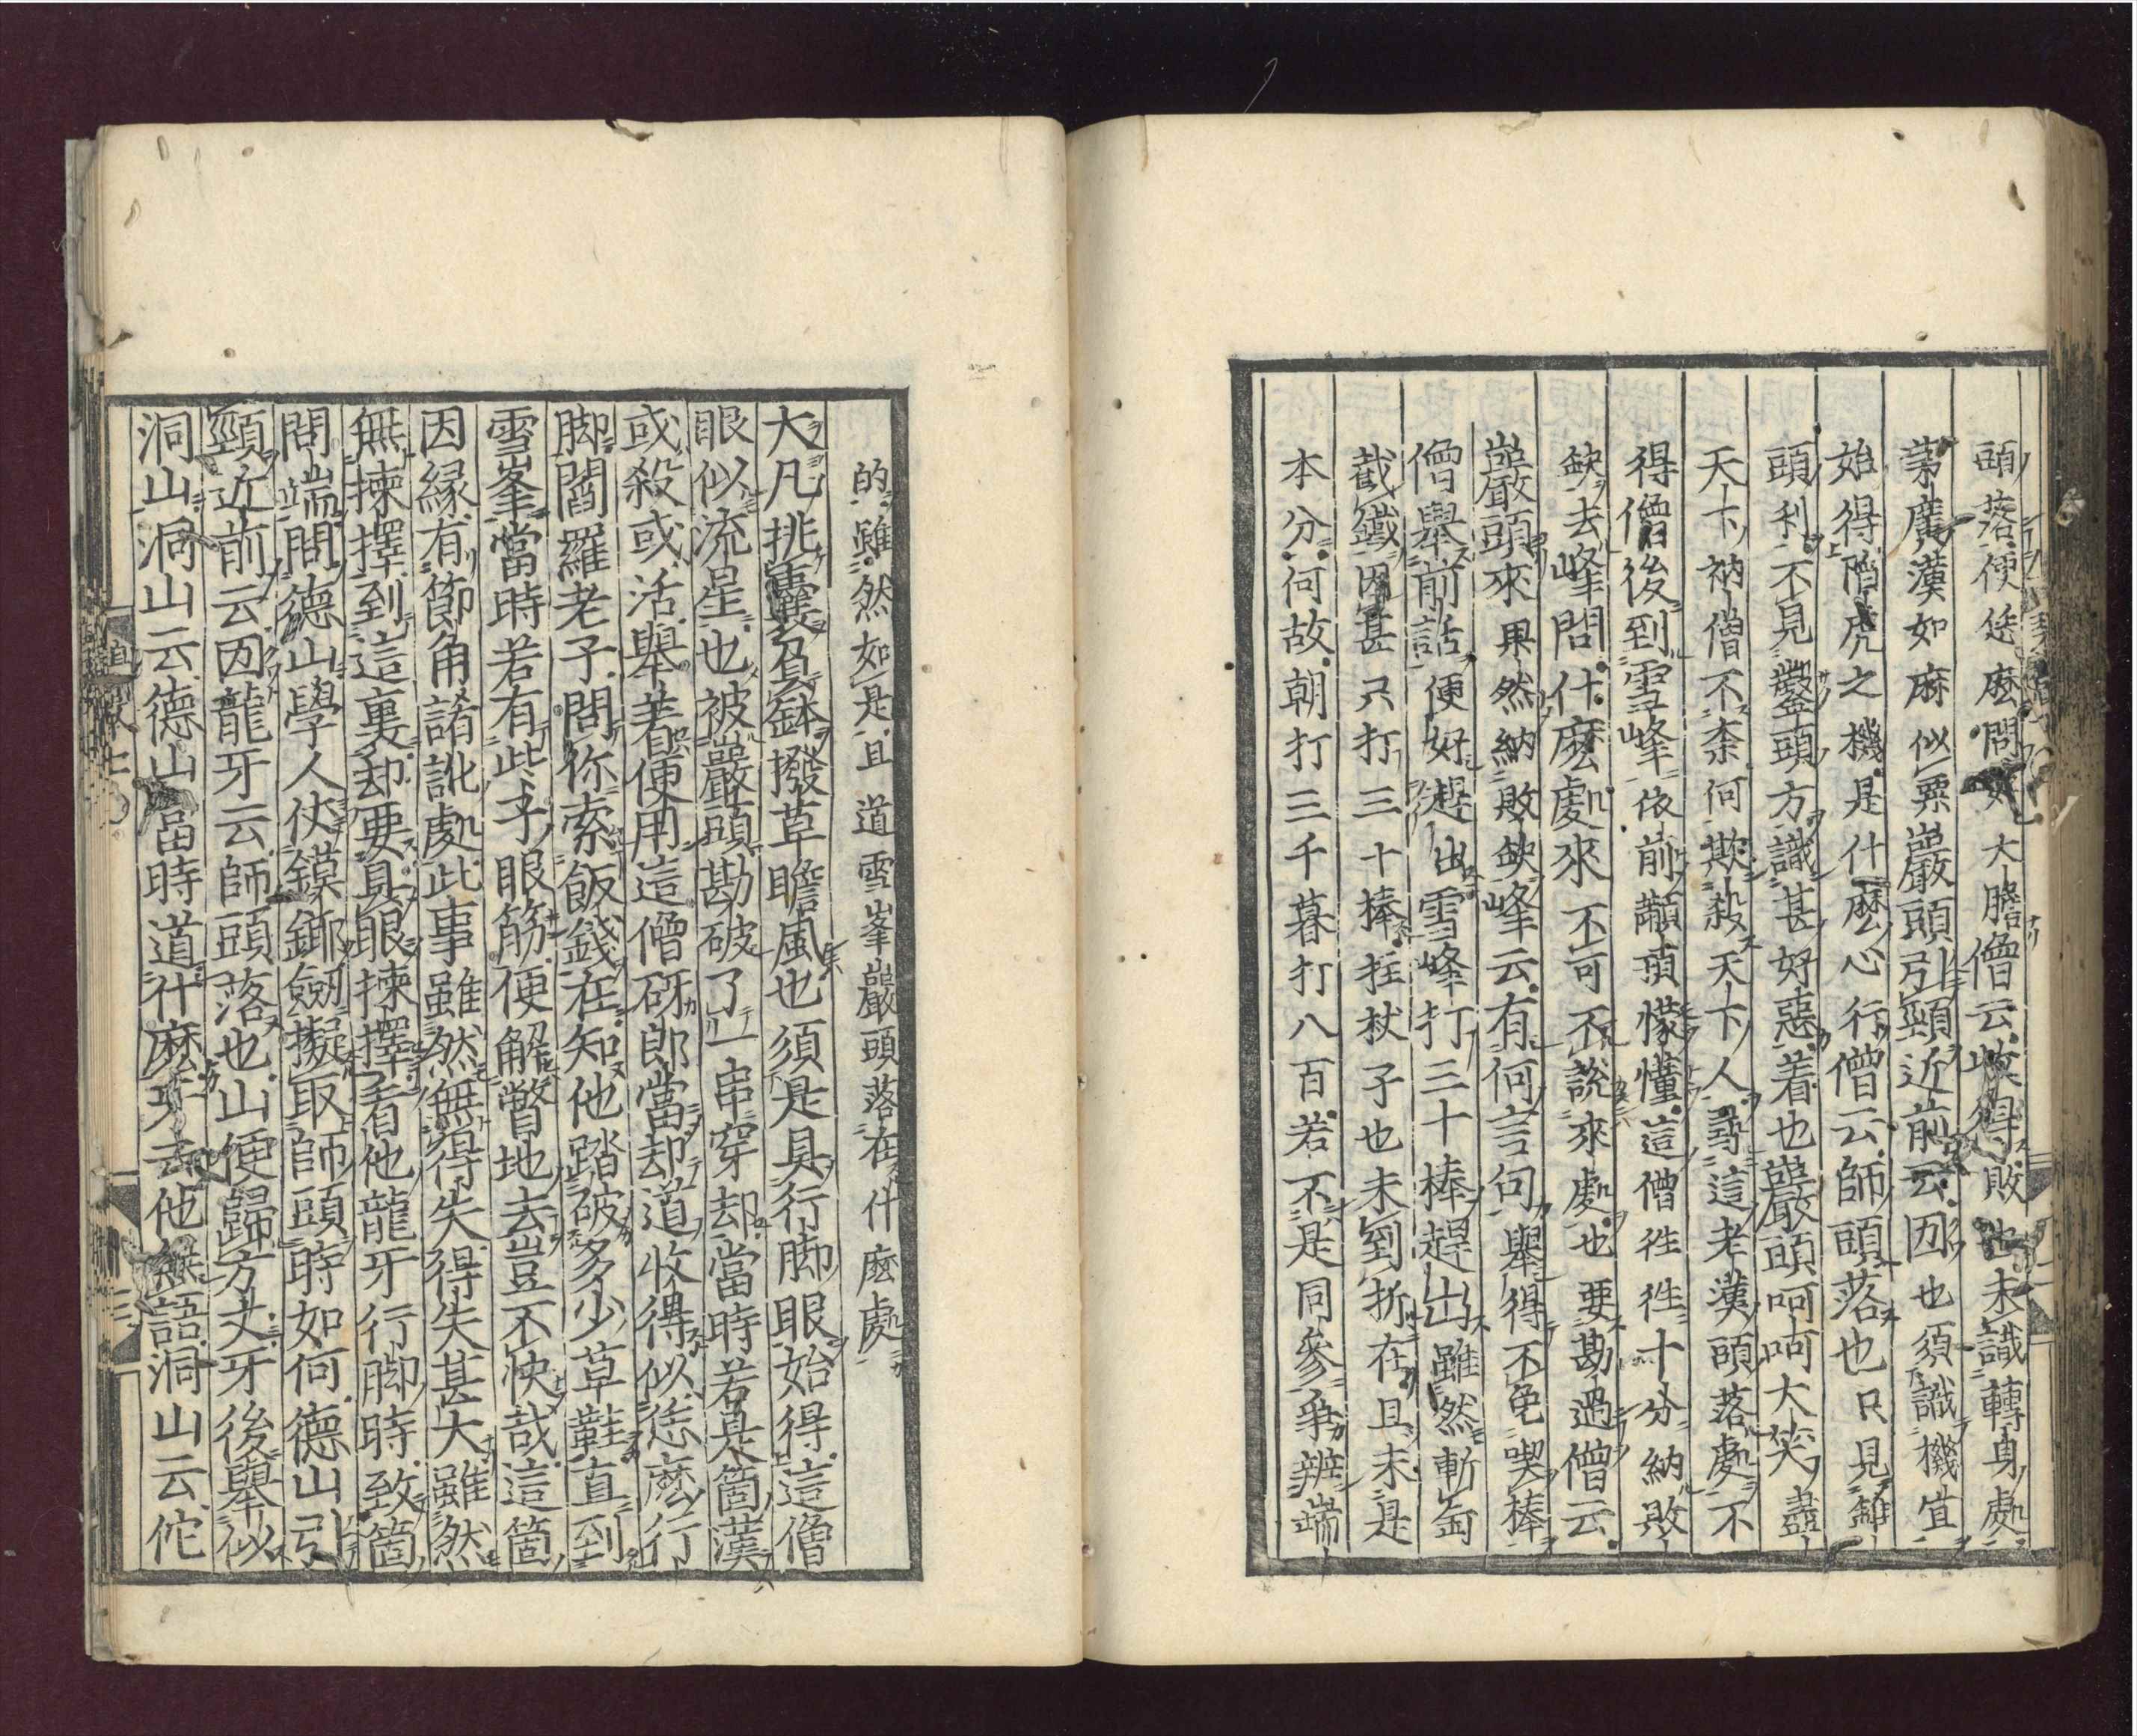 頭落便恁麼問好大膽僧云收得敗也未識轉身處
茅廣漢如麻似粟巖頭引頸近前云㘞也須識機宜
始得陷虎之機是什麼心行僧云師頭落也只見錐
頭利不見鑿頭方識甚好惡着也巖頭呵呵大笑盡
天下衲僧不柰何欺殺天下人尋這老漢頭落處不
得僧後到雪峰依前顢頇懞懂這僧徃徃十分納敗
缺去峰問什麼處來不可不說來處也要勘過僧云
巖頭來果然納敗缺峰云有何言句舉得不免喫棒
僧舉前話便好趕出雪峰打三十棒趕出雖然斬釘
截鐵因甚只打三十棒拄杖子也未到折在且未是
本分何故朝打三千暮打八百若不是同參爭辨端
的雖然如是且道雪峯巖頭落在什麼處
大凡挑囊負鉢撥草瞻風也須是具行脚眼始得這僧
眼似流星也被巖頭勘破了一串穿却當時若是箇漢
或殺或活舉着便用這僧砑郎當却道收得似恁麼行
脚閻羅老子問你索飯錢在知他踏破多少草鞋直到
雪峯當時若有些子眼筋便解瞥地去豈不快哉這箇
因緣有節角誵訛處此事雖然無得失得失甚大雖然
無揀擇到這裏却要具眼揀擇看他龍牙行脚時致箇
問端問德山學人仗鏌鋣劒擬取師頭時如何德山引
頸近前云㘞龍牙云師頭落也山便歸方丈牙後舉似
洞山洞山云德山當時道什麼牙云他無語洞山云佗